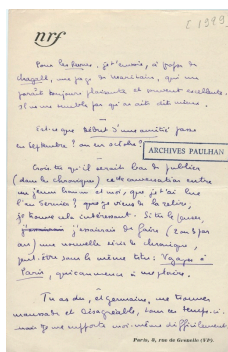 c. 1929
nrf
Pour les pages, je t'envoie, à propos de
Chagall, une page de Maritain, qui me
paraît toujours plaisante et souvent excellente.
Il ne me semble pas qu'on ait dit mieux.
Est-ce que Début d'une amitié passe
en septembre ? ou en octobre ?
ARCHIVES PAULHAN
Crois-tu qu'il serait bas de publier
(dans les chroniques) cette conversation entre
un jeune homme et moi, que je t'ai lue
l'an dernier ? que je viens de la relire,
je trouve cela intéressant. Si tu
j'essaierais de faire (2 ou 3 par
an) une nouvelle série de chronique,
peut-être sous le même titre : Voyage à
Paris, qui commence à me plaire.
Tu as dû, et Germaine, me trouver
maussade et désagréable, tous ces temps-ci.
mais je me supporte moi-même difficilement
Paris, 5, rue de Grenelle (VIᵉ).